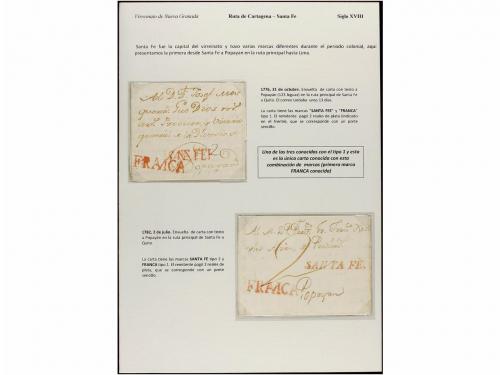 Virreinato de Nueva Granada
Ruta de Cartagena – Santa Fe
Siglo XVIII
Santa Fe fue la capital del virreinato y tuvo varias marcas diferentes durante el periodo colonial, aquí
presentamos la primera desde Santa Fe a Popayan en la ruta principal hacia Lima.
1776, 31 de octubre. Envuelta de carta con texto a
Popayán (123 leguas) en la ruta principal de Santa Fe
a Quito. El correo tardaba unos 13 dias.
La carta tiene las marcas "SANTA FEE" y "FRANCA"
tipo 1. El remitente pagó 2 reales de plata (indicado
en el frente), que se corresponde con un porte
sencillo.
FRANCA
Popayan
Una de las tres conocidas con el tipo 1 y esta
es la única carta conocida con esta
combinación de marcas (primera marca
FRANCA conocida)
1782, 2 de julio. Envuelta de carta con texto
a Popayan en la ruta principal de Santa Fe a
Quito
La carta tiene las marcas SANTA FE tipo 2 y
FRANCA tipo 1. El remitente pagó 2 reales de
plata, que se corresponde con un porte
sencillo.
2
SANTA FE.
FRACA
Popayan